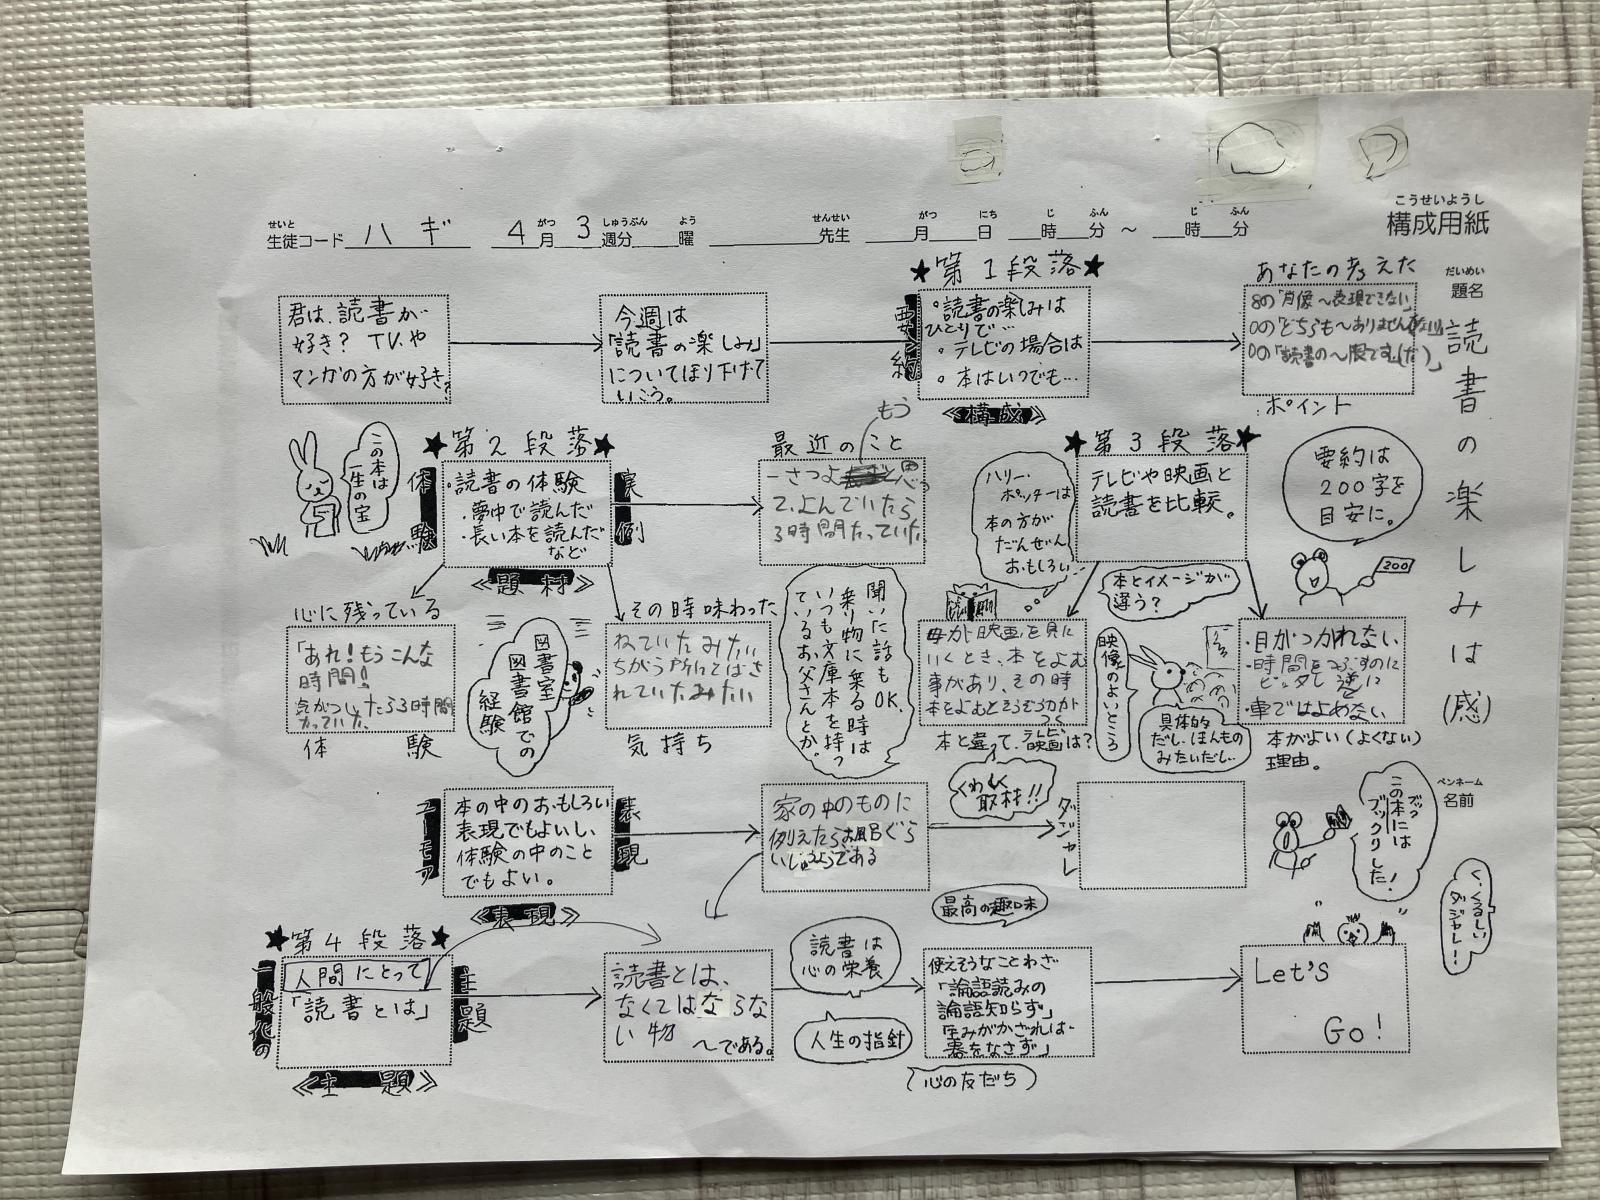 こうせいようし
構成用紙
せいと がつ しゅうぶん よう せんせい がつ にち じ ふん じ ふん
生徒コード ハギ 4月 3週分 曜 先生 月 日 時 分 〜 時 分
だいめい
題名
読書の楽しみは(感)
君は、読書が
好き? TVや
マンガの方が好き?
今週は
「読書の楽しみ」
についてほり下げて
いこう。
★第1段落★
要約
・読書の楽しみは
ひとりで…
・テレビの場合は
・本はいつでも…
≪構成≫
あなたの考えた
8の「肖像〜表現できない」
ポイント
要約は
200字を
目安に。
200
この本は
一生の宝
★第2段落★
体験
・読書の体験
・夢中で読んだ
・長い本を読んだ
など
実例
≪題材≫
最近のこと
もう
一さつよ
て、よんでいたら
3時間たっていた
心に残っている
「あれ!もうこんな
時間!!
気がついたら3時間
たっていた。
体験
図書室
図書館での
経験
その時味わった
ねていたみたい
ちがう所にとばさ
れていたみたい
気持ち
聞いた話もOK.
乗り物に乗る時は
いつも文庫本を持っ
ているお父さんとか。
★第3段落★
テレビや映画と
読書を比較。
ハリー・
ポッターは
本の方が
だんぜん
おもしろい
本とイメージが
違う?
母が映画を見に
いくとき、本をよむ
事があり、その時
本をよむとそうぞう力が
つく
本と違って、テレビ、
映画は?
映像のよいところ
具体的
だし、ほんもの
みたいだし…
・目がつかれない
・時間をつぶすのに
ピッタし 逆に
・車ではよめない
本がよい(よくない)
理由。
ユーモア
本の中のおもしろい
表現でもよいし、
体験の中のこと
でもよい。
表現
≪表現≫
家の中のものに
例えたらお風呂ぐら
いじゅうようである
くわしく
取材!!
ダジャレ
ペンネーム
名前
この本には
ブックリした!
く、くるしい
ダジャレ!
★第4段落★
一般化の
人間にとって
「読書とは」
主題
≪主題≫
読書とは、
なくてはならな
い物
〜である。
最高の趣味
読書は
心の栄養
人生の指針
使えそうなことわざ
「論語読みの
論語知らず」
心の友だち
Let's
Go!